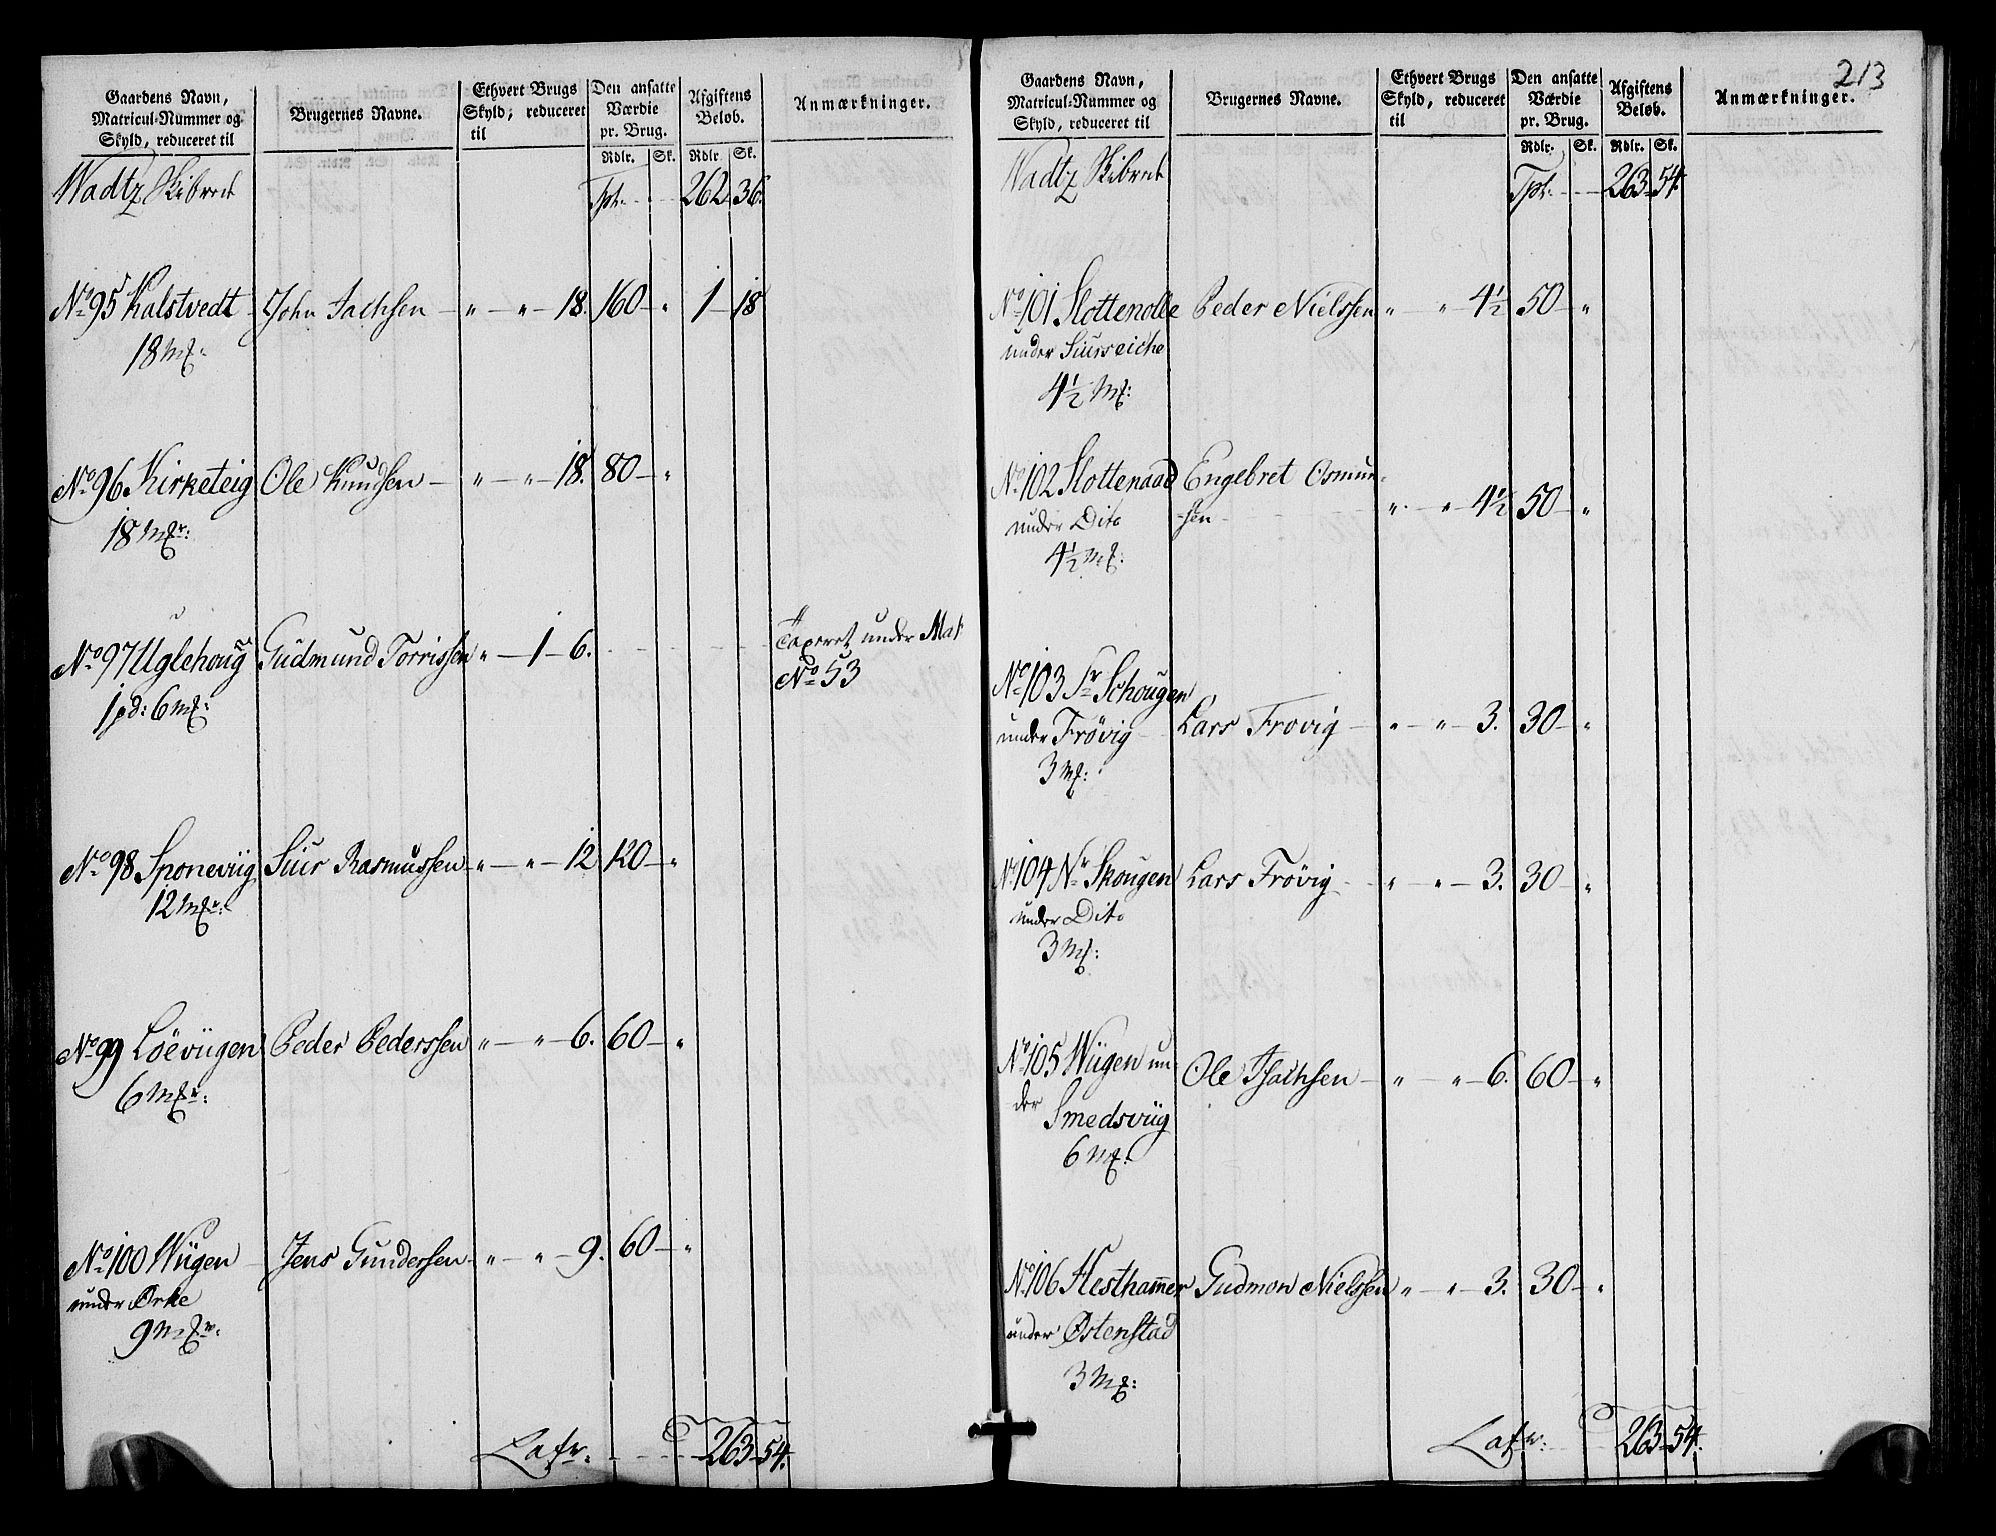 Gaardens Navn, Matricul-Nummer og Skyld, reduceret til
Brugernes Navne.
Ethvert Brugs Skyld, reduceret til
Den ansatte Værdie pr. Brug.
Afgiftens Beløb.
Anmærkninger.
Rdlr. Sk. Rdlr. Sk.
Wadtz Skibred Tpt: 262 36.
No 95 Kalstvedt John Jachsen " " 18. 160 " 1 18
18 Mk:
No 96 Kirketeig Ole Knudsen " " 18. 80 "
18 Mkr:
No 97 Uglehoug Gudmund Torrissen " 1 6. Taxeret under Mat
No 53
1 pd: 6 Mk:
No 98 Sponeviig Siur Rasmussen " " 12 120 "
12 Mkr:
No 99 Löeviigen Peder Pederssen " " 6. 60 "
6 Mkr:
No 100 Wiigen Jens Gunderssen " " 9. 60 "
under Ørke
9 Mkr:
Lafr: 263 54.
213
Gaardens Navn, Matricul-Nummer og Skyld, reduceret til
Brugernes Navne.
Ethvert Brugs Skyld, reduceret til
Den ansatte Værdie pr. Brug.
Afgiftens Beløb.
Anmærkninger.
Rdlr. Sk. Rdlr. Sk.
Wadtz Skibred Tpt: 263 54.
No 101 Slottenolle Peder Nielssen " " 4½ 50 "
under Siurseiche
4½ Mk:
No 102 Slottenaad Engebret Osmun-
under Dito -sen " " 4½ 50 "
4½ Mk:
No 103 Sr Schougen
under Frövig Lars Frovig " " 3. 30 "
3 Mk:
No 104 Nr Skougen Lars Frövig " " 3. 30 "
under Dito
3 Mk:
No 105 Wiigen un-
der Ole Isachsen " " 6. 60 "
Smedsviig
6 Mk:
No 106 Hesthamer Gudmon Nielssen " " 3. 30 "
under Østenstad
3 Mk:
Lafr: 263 54.